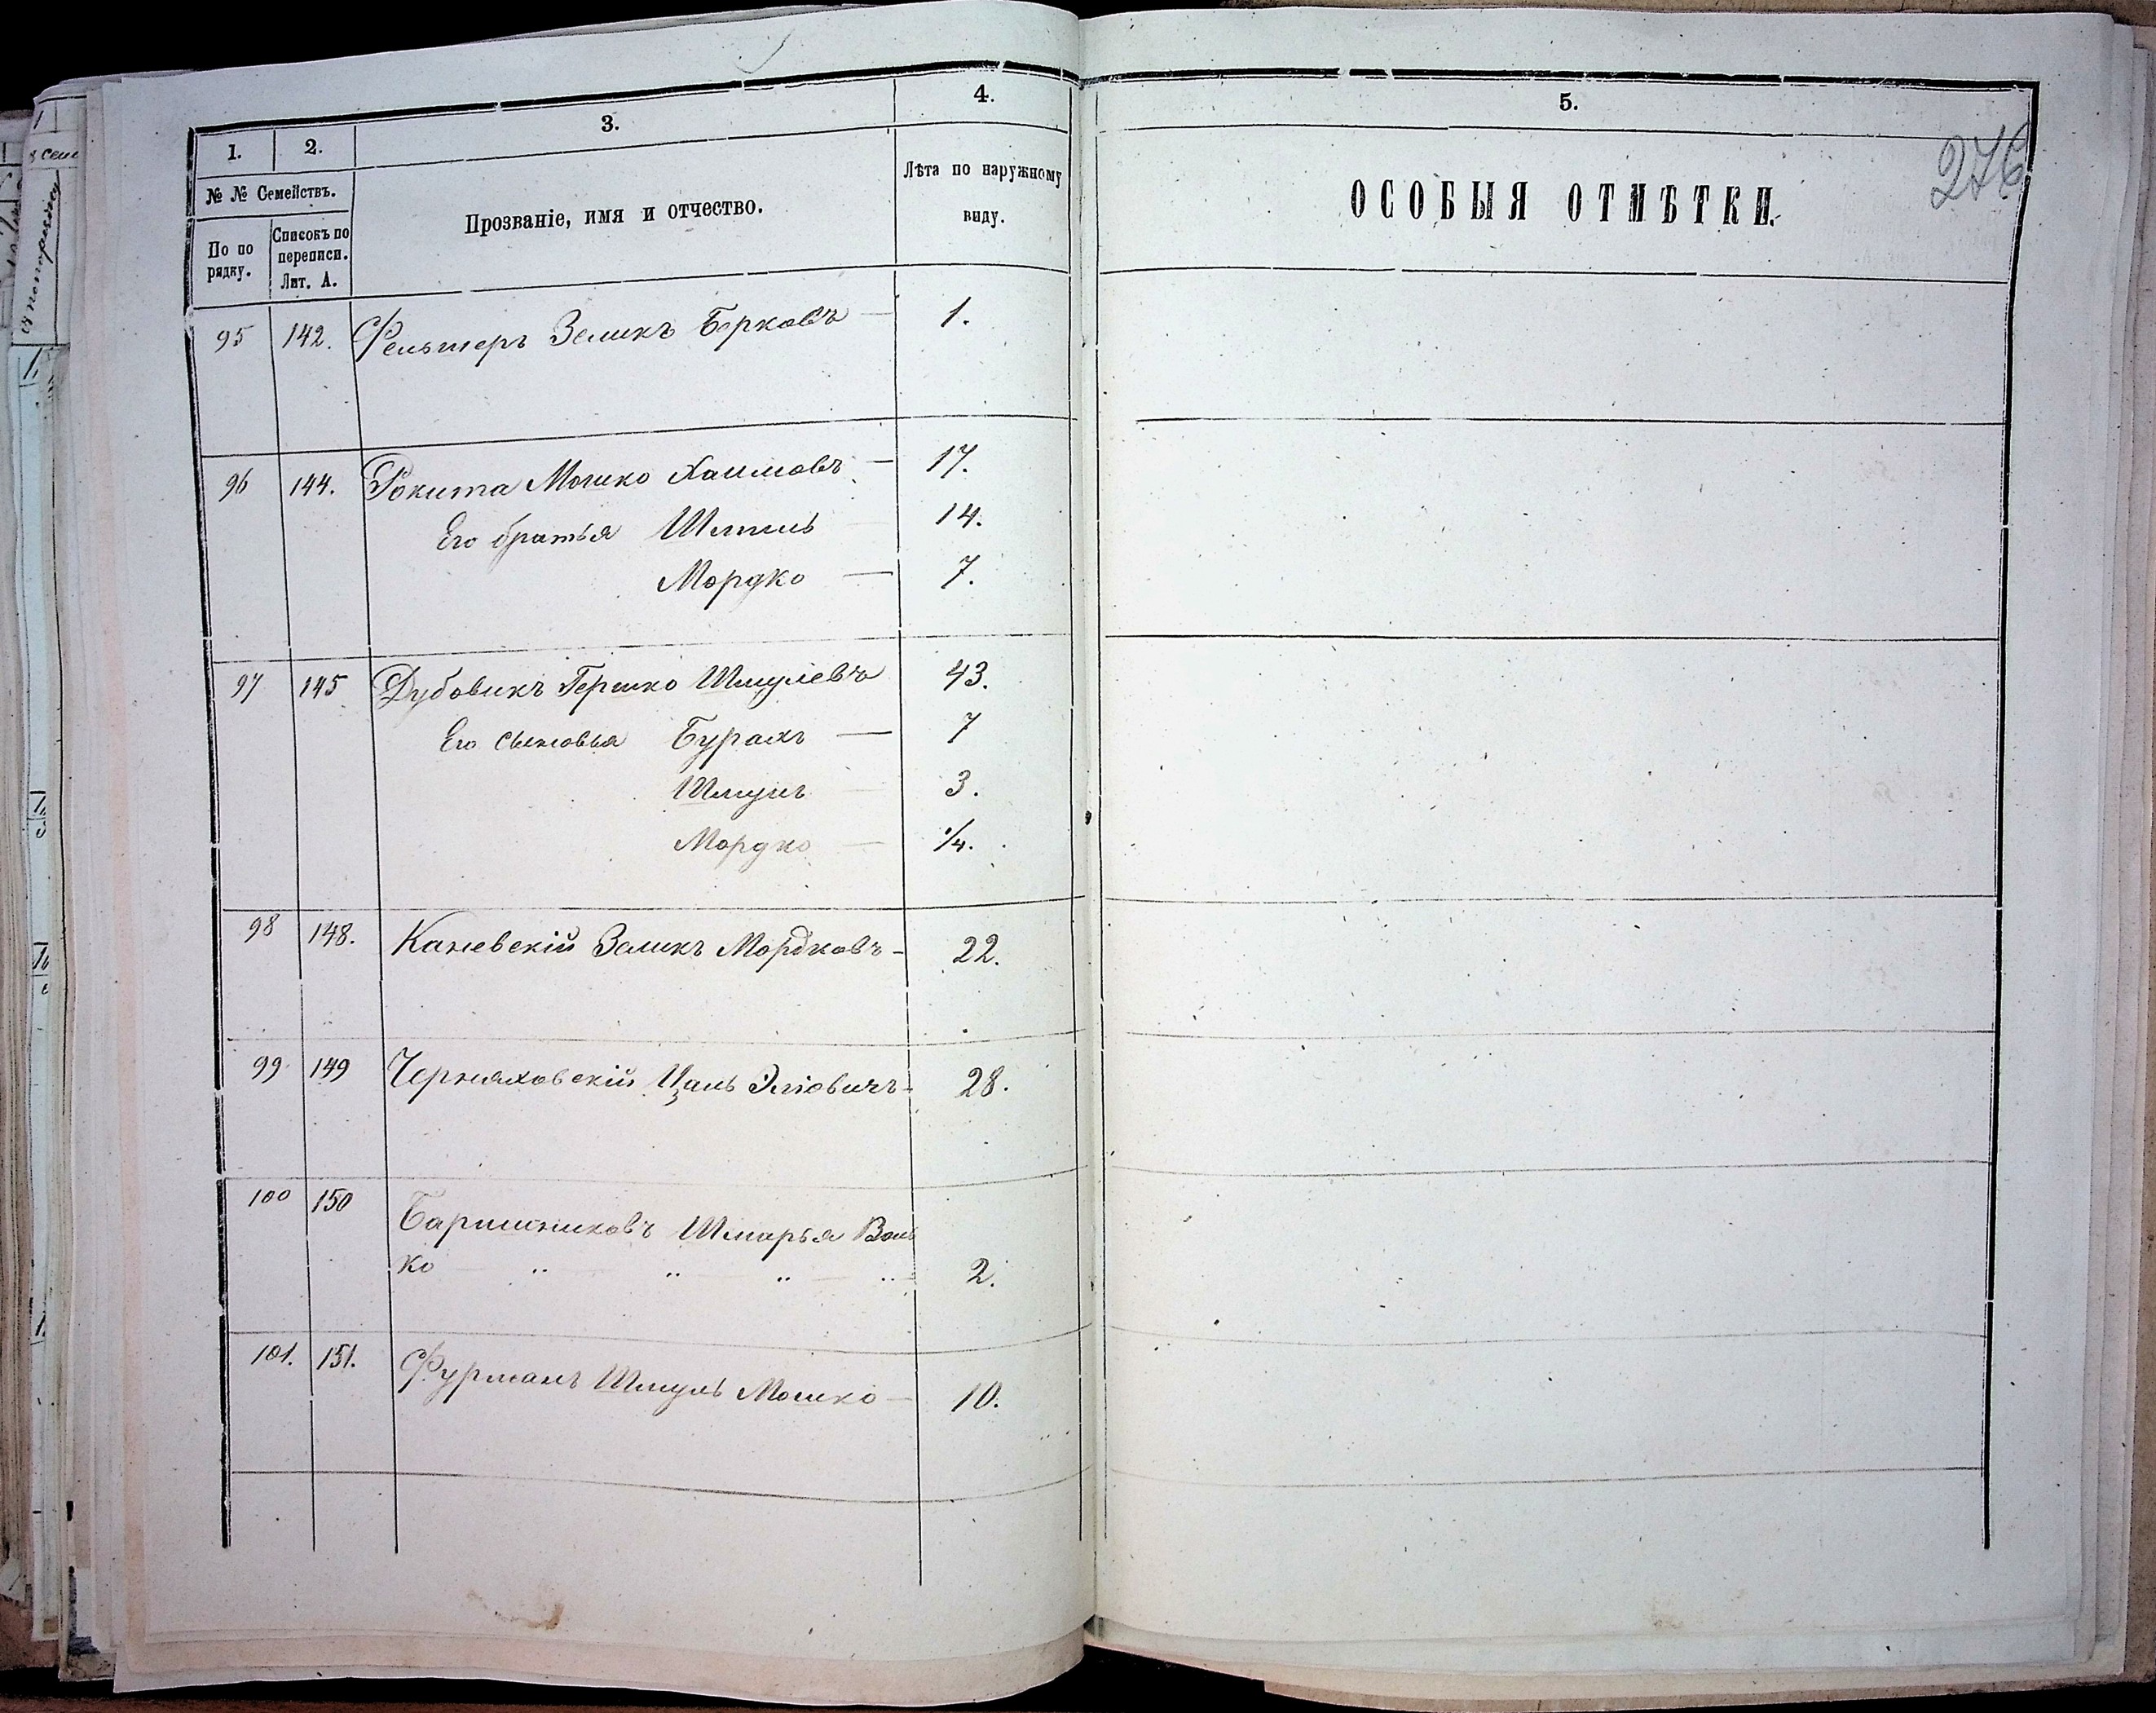 1.
2.
3.
4.
5.
276
№ № Семействъ.
По по
рядку.
Списокъ по
переписи.
Лит. А.
Прозваніе, имя и отчество.
Лѣта по наружному
виду.
ОСОБЫЯ ОТМѢТКИ.
95 142. Фельшеръ Зеликъ Берковъ 1.
96 144. Рокита Мошко Хаимовъ — 17.
Его братья 14.
Мордко — 7.
97 145 Дубовикъ Гершко Шмулевъ 43.
Его сыновья Бурахъ — 7
Шмуль 3.
Мордко — 1/4.
98 148. Каневскій Зеликъ Мордковъ - 22.
99 149 Черняховскій Цаль Эліовичъ - 28.
100 150 Баришниковъ Шмарья Воль
ко „ „ „ „ 2.
101. 151. Фурманъ Шмуль Мошко — 10.